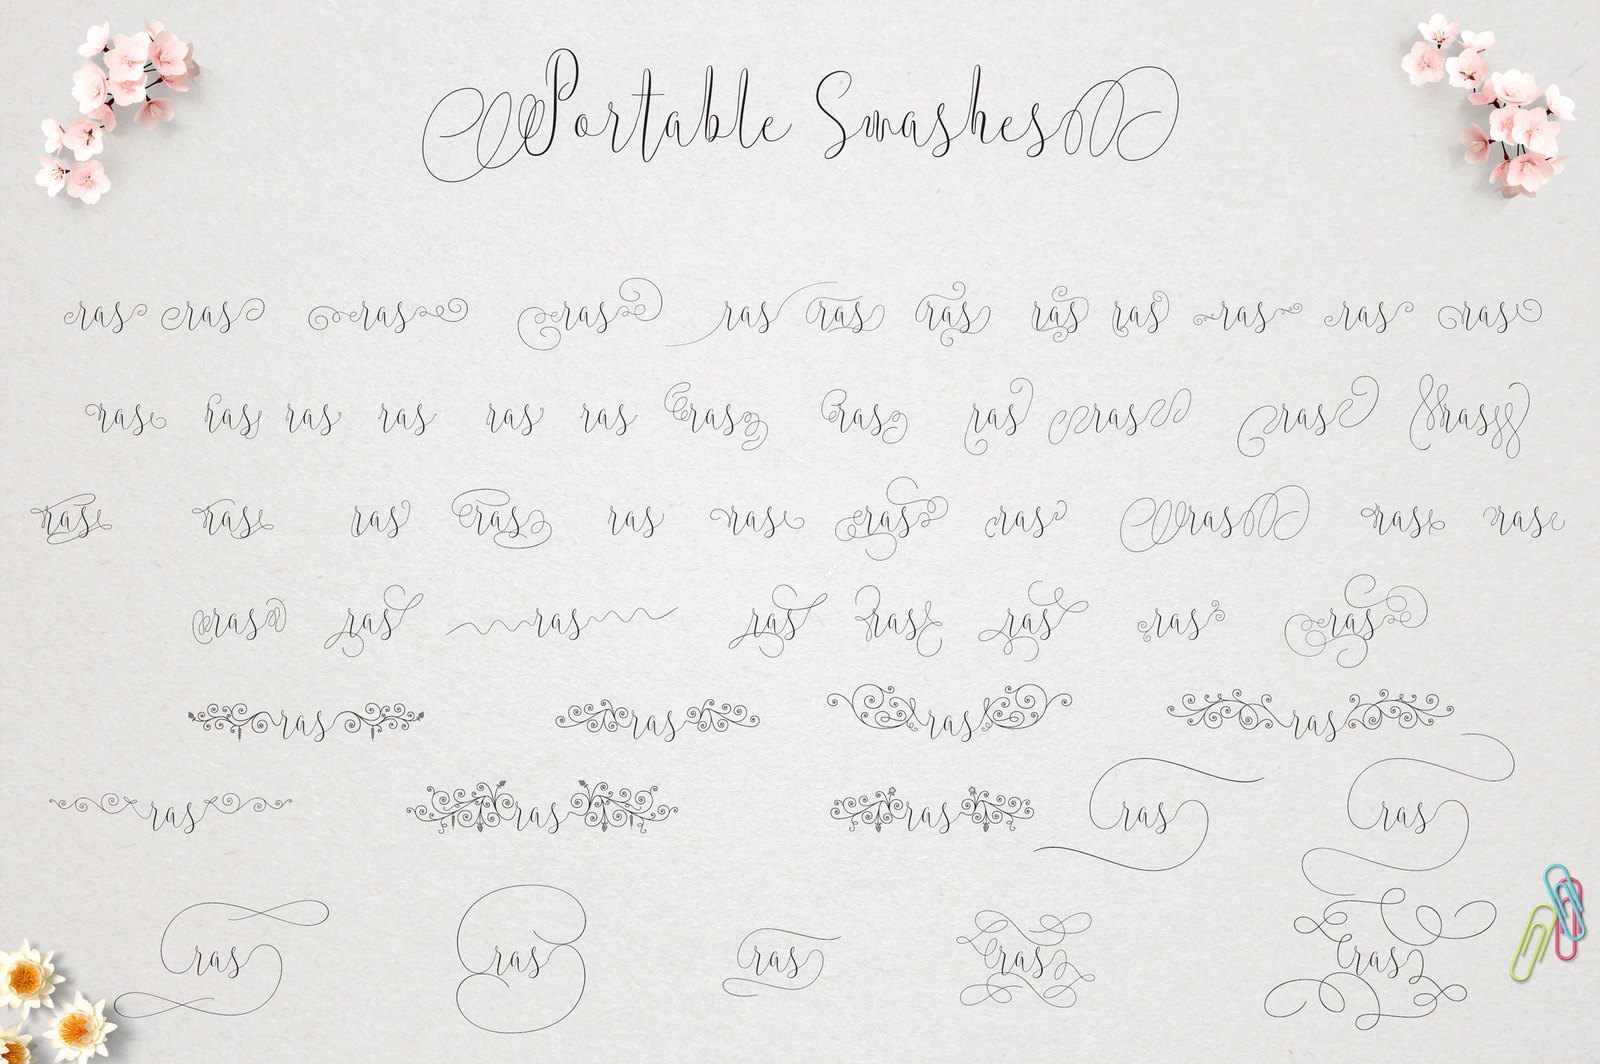 Portable Swashes
ras ras ras ras ras ras ras ras ras ras ras ras
ras ras ras ras ras ras ras ras ras ras ras ras
ras ras ras ras ras ras ras ras ras ras ras
ras ras ras ras ras ras ras ras
ras ras ras ras
ras ras ras ras ras
ras ras ras ras ras